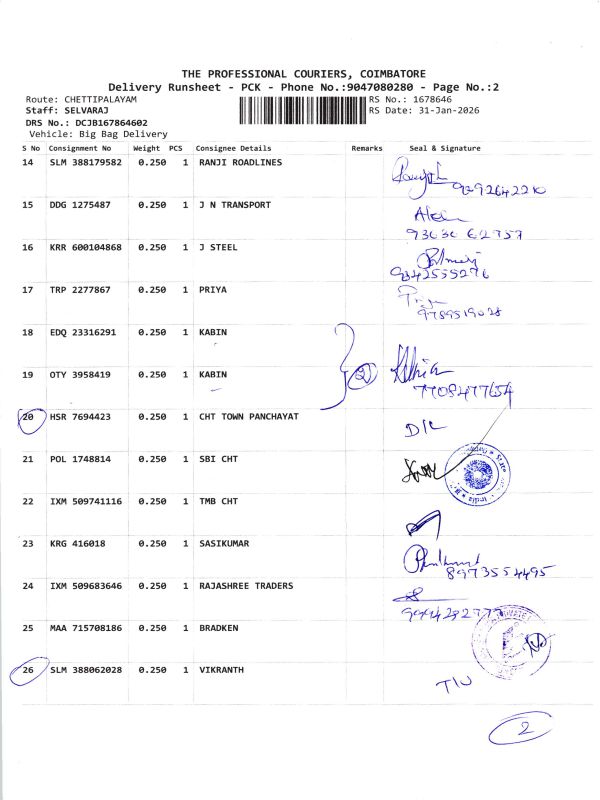 THE PROFESSIONAL COURIERS, COIMBATORE
Delivery Runsheet - PCK - Phone No.:9047080280 - Page No.:2
Route: CHETTIPALAYAM
RS No.: 1678646
Staff: SELVARAJ
RS Date: 31-Jan-2026
DRS No.: DCJB167864602
Vehicle: Big Bag Delivery
S No Consignment No Weight PCS Consignee Details Remarks Seal & Signature
14 SLM 388179582 0.250 1 RANJI ROADLINES
9392642210
15 DDG 1275487 0.250 1 J N TRANSPORT
93630 62757
16 KRR 600104868 0.250 1 J STEEL
9842555276
17 TRP 2277867 0.250 1 PRIYA
9789519028
18 EDQ 23316291 0.250 1 KABIN
19 OTY 3958419 0.250 1 KABIN
2
7708477654
20 HSR 7694423 0.250 1 CHT TOWN PANCHAYAT
D/L
21 POL 1748814 0.250 1 SBI CHT
22 IXM 509741116 0.250 1 TMB CHT
23 KRG 416018 0.250 1 SASIKUMAR
8973554495
24 IXM 509683646 0.250 1 RAJASHREE TRADERS
25 MAA 715708186 0.250 1 BRADKEN
26 SLM 388062028 0.250 1 VIKRANTH
2